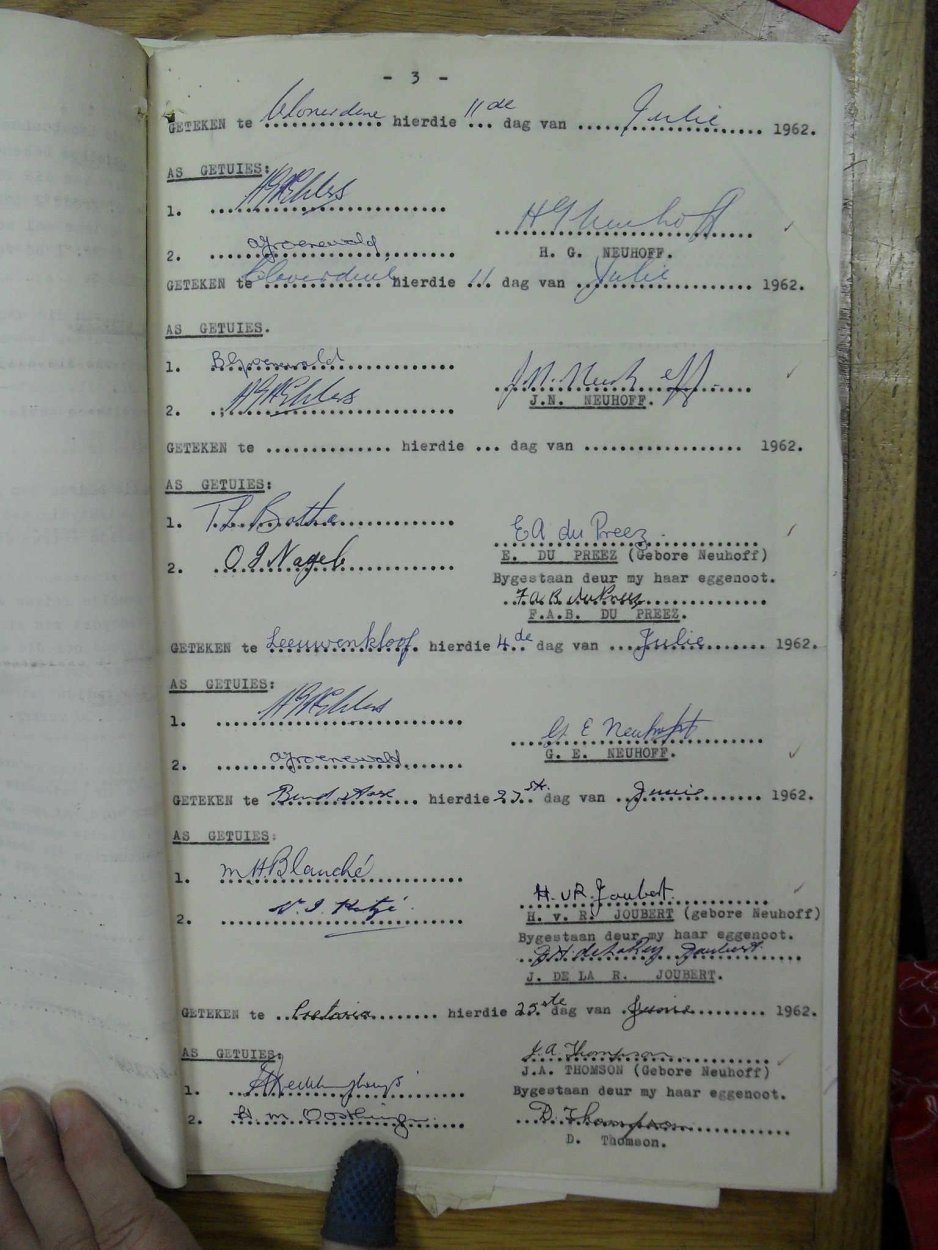 - 3 -
GETEKEN te ............ hierdie 11de dag van Julie 1962.
AS GETUIES:
1. H G Ehlers
H G Neuhoff
2. A Groenewald
H. G. NEUHOFF.
GETEKEN te ............ hierdie 11 dag van Julie 1962.
AS GETUIES.
1. Groenewald
J. N. Neuhoff
2. H G Ehlers
J.N. NEUHOFF.
GETEKEN te ............ hierdie ... dag van ................ 1962.
AS GETUIES:
1. T L Botha
E A du Preez
E. DU PREEZ (Gebore Neuhoff)
2. O J Nagel
Bygestaan deur my haar eggenoot.
F.A.B. du Preez
F.A.B. DU PREEZ.
GETEKEN te Leeuwenkloof hierdie 4de dag van Julie 1962.
AS GETUIES:
1. H G Ehlers
G E Neuhoff
G. E. NEUHOFF.
2. A Groenewald
GETEKEN te ............ hierdie 27st. dag van Junie 1962.
AS GETUIES:
1. M. H. Blanché
H. v R. Joubert
2.
H. v. R. JOUBERT (gebore Neuhoff)
Bygestaan deur my haar eggenoot.
de la Rey Joubert
J. DE LA R. JOUBERT.
GETEKEN te Pretoria hierdie 25ste dag van Junie 1962.
AS GETUIES:
J. A. Thomson
J.A. THOMSON (Gebore Neuhoff)
1.
Bygestaan deur my haar eggenoot.
2. H. M. Oosthuizen
D. Thomson
D. Thomson.